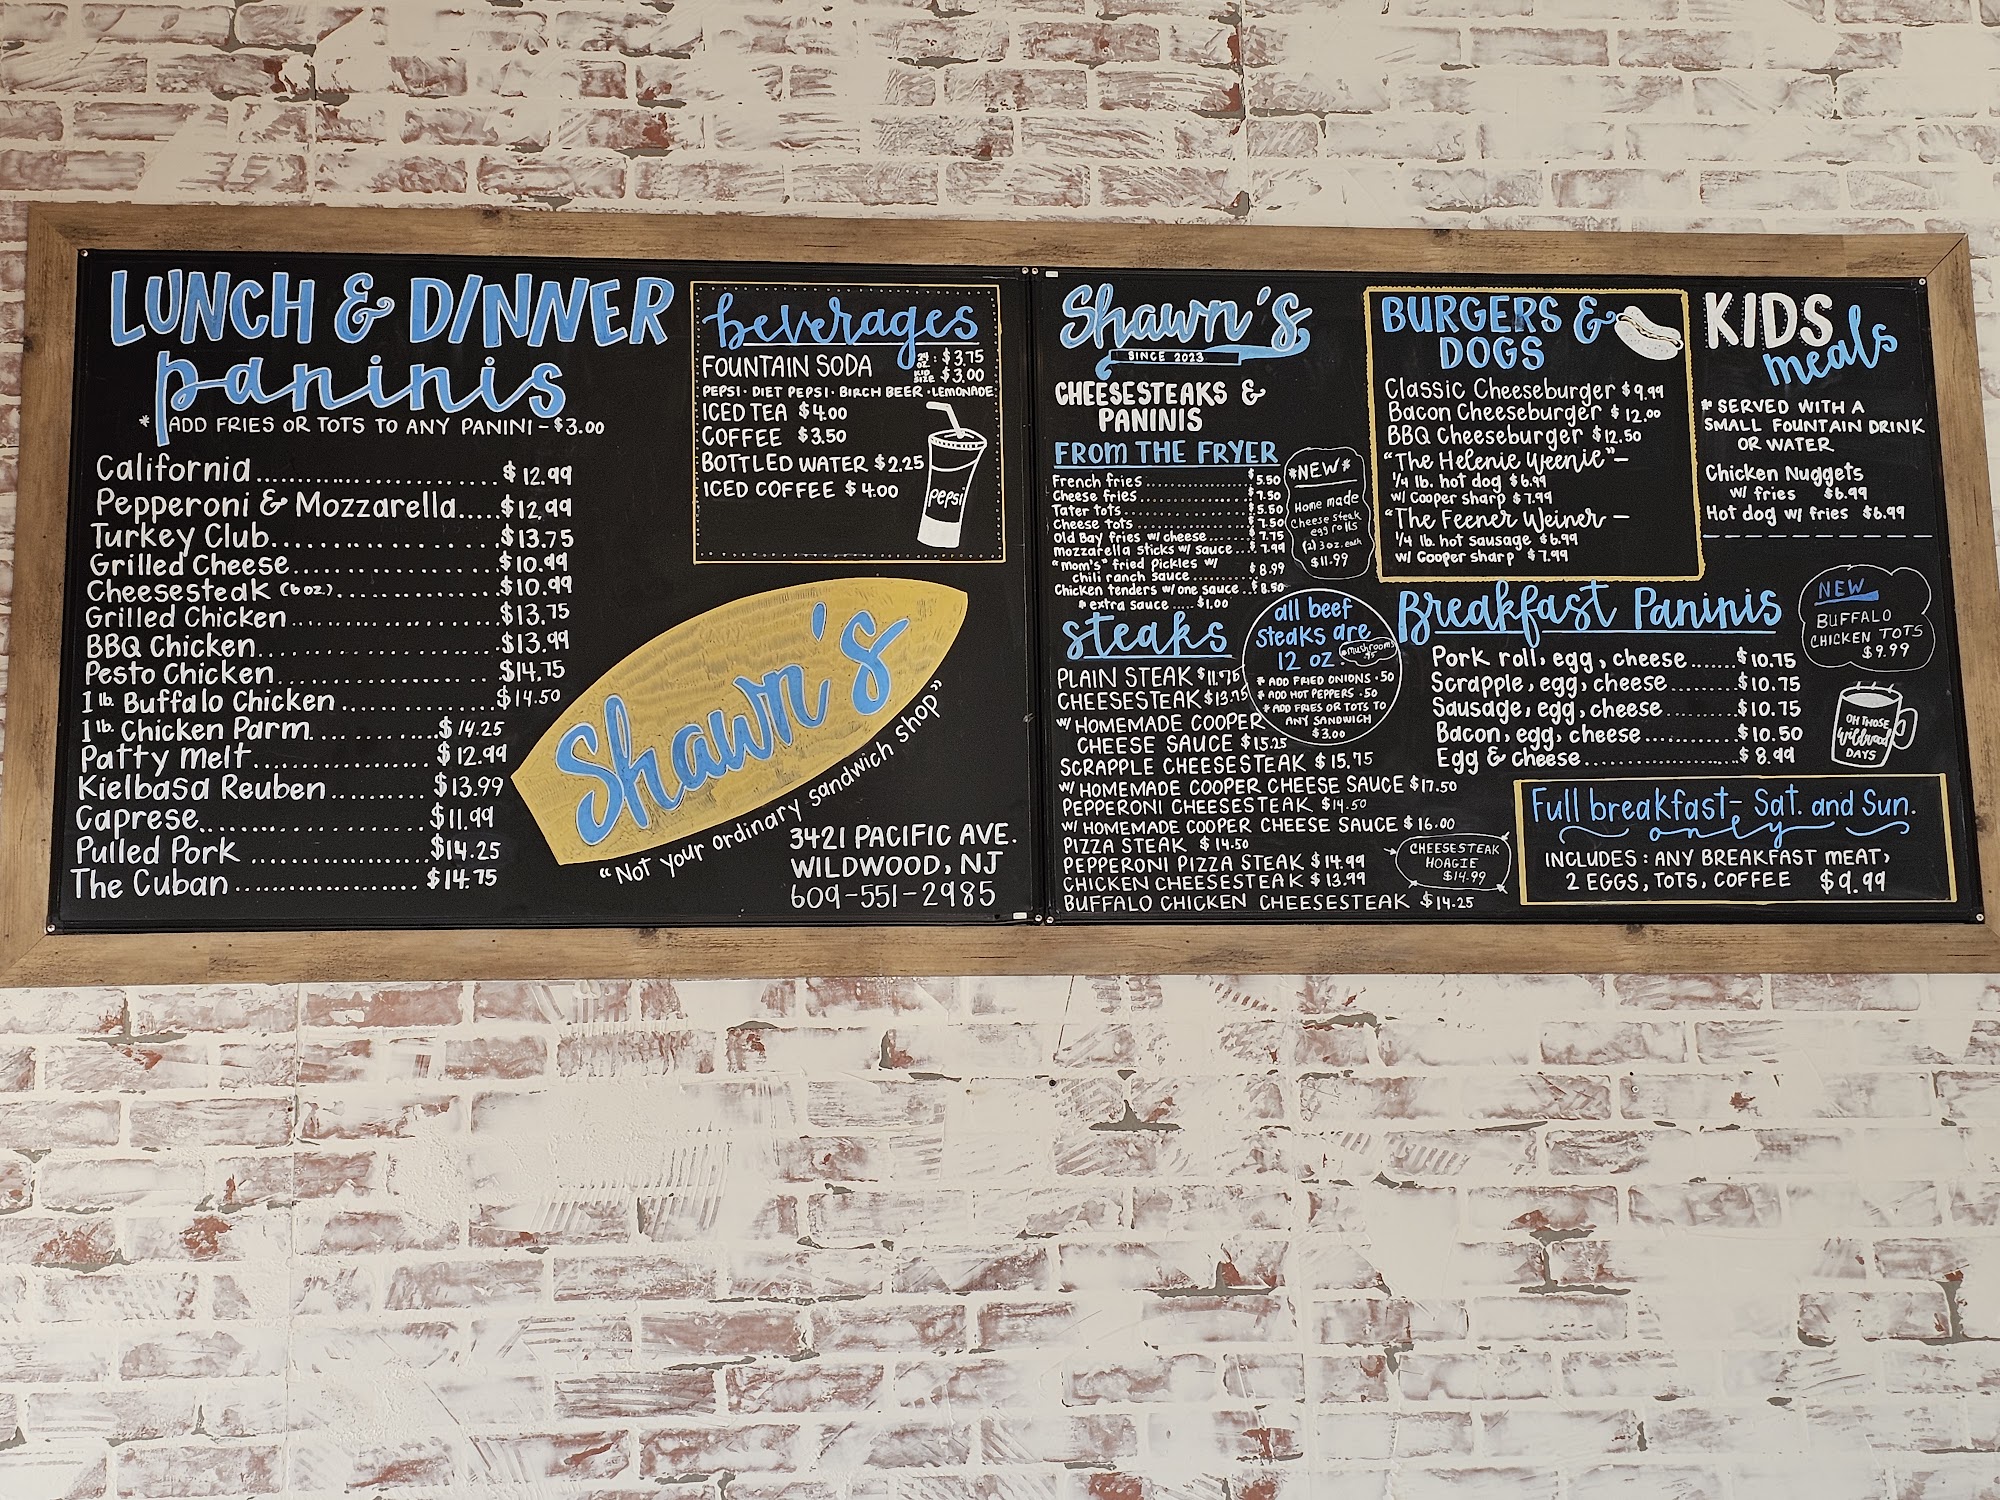 LUNCH & DINNER
paninis
* ADD FRIES OR TOTS TO ANY PANINI - $3.00
California.................... $12.99
Pepperoni & Mozzarella.....$12.99
Turkey Club....................$13.75
Grilled Cheese....................$10.99
Cheesesteak (6oz)....................$10.99
Grilled Chicken....................$13.75
BBQ Chicken....................$13.99
Pesto Chicken....................$14.75
1 lb. Buffalo Chicken ..............$14.50
1 lb. Chicken Parm..............$14.25
Patty melt....................$12.99
Kielbasa Reuben..........$13.99
Caprese....................$11.99
Pulled Pork ................$14.25
The Cuban ..................$14.75
beverages
FOUNTAIN SODA
OZ : $3.75
KID SIZE $3.00
PEPSI · DIET PEPSI · BIRCH BEER · LEMONADE
ICED TEA $4.00
COFFEE $3.50
BOTTLED WATER $2.25
ICED COFFEE $4.00
pepsi
Shawn's
"Not your ordinary sandwich shop"
3421 PACIFIC AVE.
WILDWOOD, NJ
609-551-2985
Shawn's
SINCE 2023
CHEESESTEAKS &
PANINIS
FROM THE FRYER
French fries ................ $5.50
Cheese fries ................ $7.50
Tater tots ................ $5.50
Cheese tots ................ $7.50
Old Bay fries w/ cheese ....... $7.75
mozzarella sticks w/ sauce... $7.99
"mom's" fried pickles w/
chili ranch sauce .......... $8.99
Chicken tenders w/ one sauce...$8.50
* extra sauce .....$1.00
*NEW*
Home made
Cheese steak
egg rolls
(2) 3 oz. each
$11.99
steaks
PLAIN STEAK $11.75
CHEESESTEAK $13.75
w/ HOMEMADE COOPER
CHEESE SAUCE $15.25
SCRAPPLE CHEESESTEAK $15.75
w/ HOMEMADE COOPER CHEESE SAUCE $17.50
PEPPERONI CHEESESTEAK $14.50
w/ HOMEMADE COOPER CHEESE SAUCE $16.00
PIZZA STEAK $14.50
PEPPERONI PIZZA STEAK $14.99
CHICKEN CHEESESTEAK $13.99
BUFFALO CHICKEN CHEESESTEAK $14.25
all beef
steaks are
12 oz.
*mushrooms
.75
* ADD FRIED ONIONS .50
* ADD HOT PEPPERS .50
* ADD FRIES OR TOTS TO
ANY SANDWICH
$3.00
CHEESESTEAK
HOAGIE
$14.99
BURGERS &
DOGS
Classic Cheeseburger $9.99
Bacon Cheeseburger $12.00
BBQ Cheeseburger $12.50
"The Helenie Weenie" -
1/4 lb. hot dog $6.99
w/ Cooper sharp $7.99
"The Feener Weiner -
1/4 lb. hot sausage $6.99
w/ Cooper sharp $7.99
KIDS
meals
* SERVED WITH A
SMALL FOUNTAIN DRINK
OR WATER
Chicken Nuggets
w/ fries $6.99
Hot dog w/ fries $6.99
Breakfast Paninis
Pork roll, egg, cheese.......$10.75
Scrapple, egg, cheese..........$10.75
Sausage, egg, cheese..........$10.75
Bacon, egg, cheese............$10.50
Egg & cheese......................$8.99
NEW
BUFFALO
CHICKEN TOTS
$9.99
OH THOSE
Wildwood
DAYS
Full breakfast - Sat. and Sun.
only
INCLUDES: ANY BREAKFAST MEAT,
2 EGGS, TOTS, COFFEE $9.99